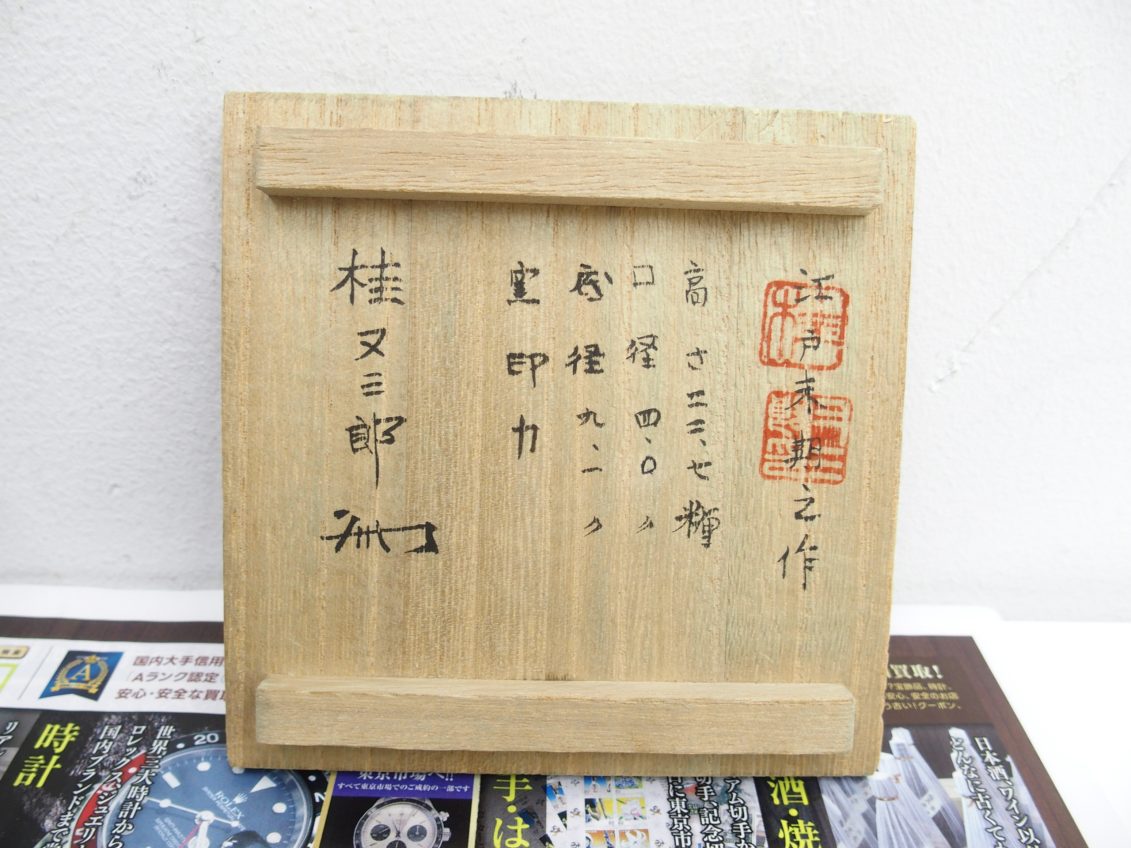 江戸末期之作
高さ二二、七糎
口径四、〇〃
底径九、一〃
窯印力
桂又三郎
国内大手信用
Aランク認定
安心・安全な買取
時計
世界三大時計から
ロレックス・ジュエリ
国内ブランドまで
20
ROLEX
東京市場へ!!
すべて東京市場でのご成約の一部です
手・は
切手、記念
に東京市
酒・焼
日本酒、ワイン以
どんなに古くても
買取!